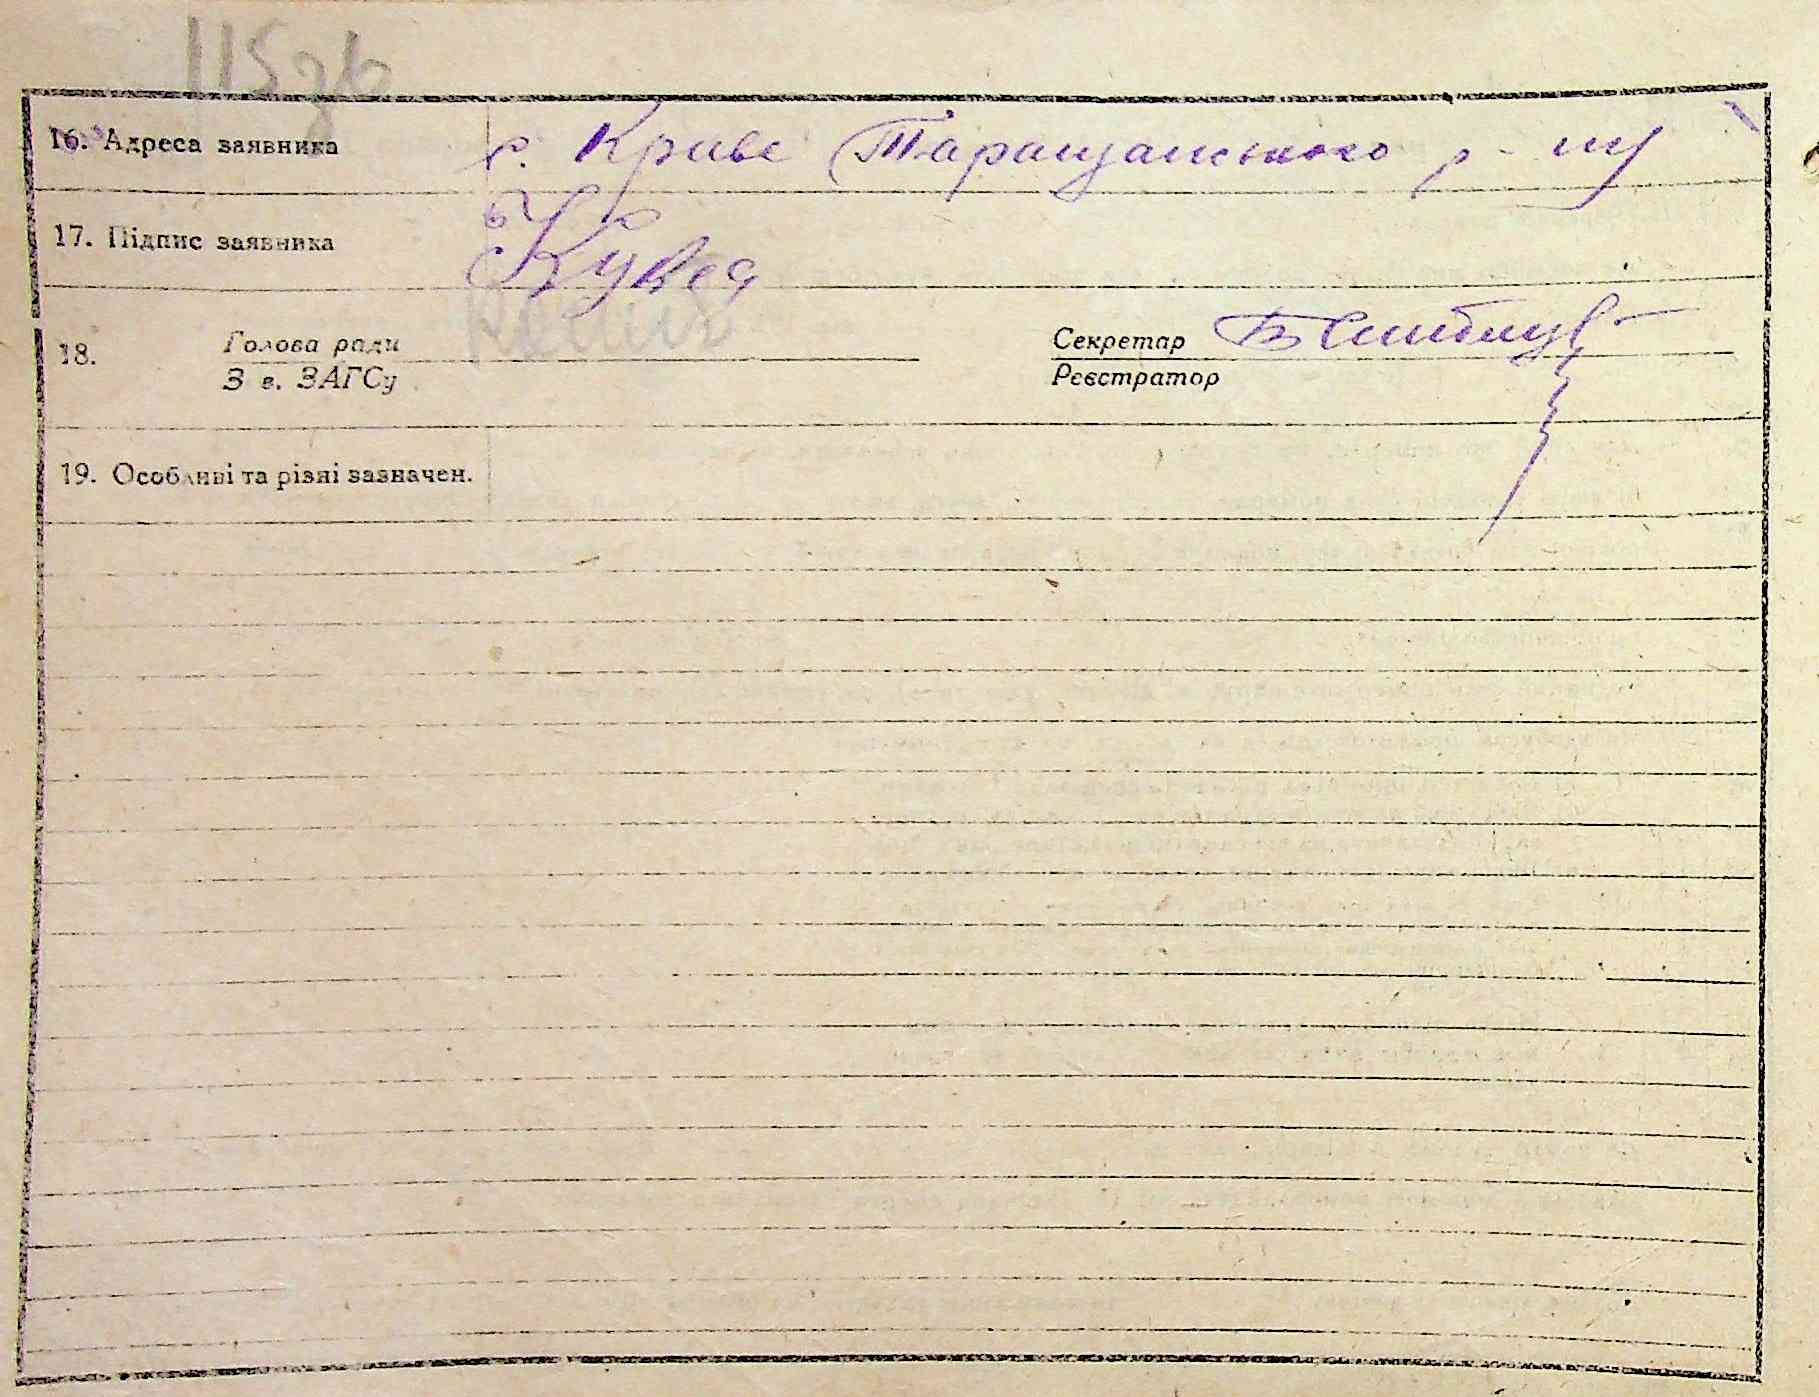 115 зв
16. Адреса заявника с. Криве Таращанського р-ну
17. Підпис заявника
18. Голова ради Секретар
Зав. ЗАГСу Реєстратор
19. Особливі та різні зазначен.